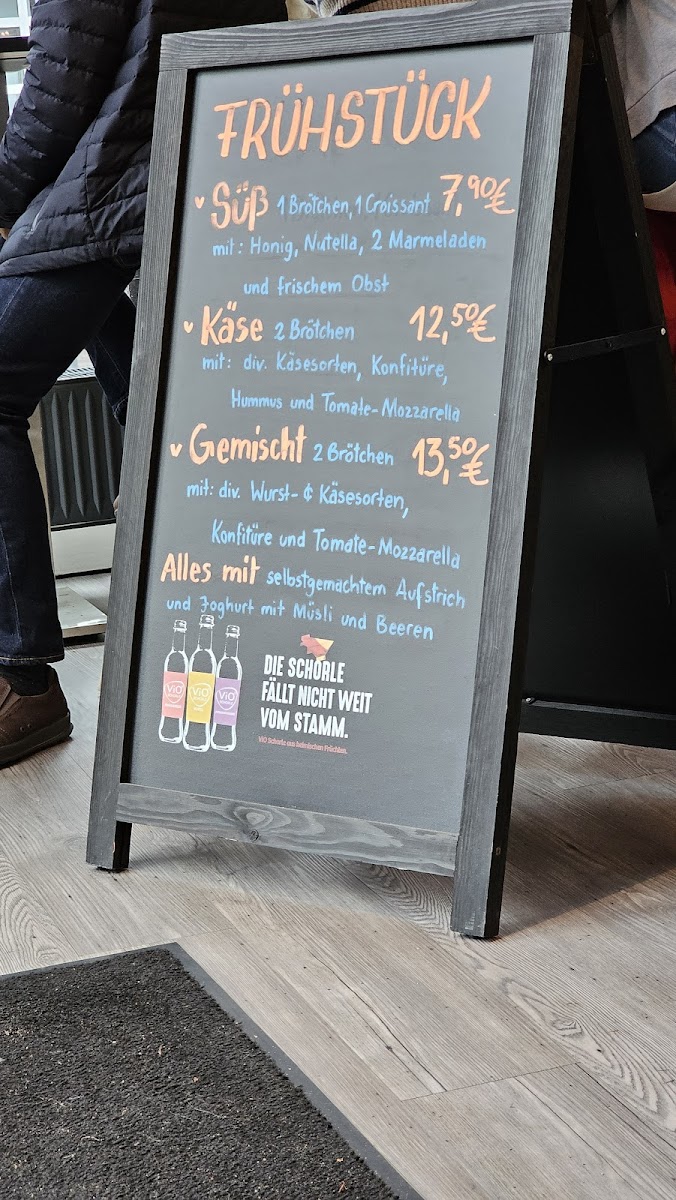 FRÜHSTÜCK
♥ Süß 1 Brötchen, 1 Croissant 7,90€
mit: Honig, Nutella, 2 Marmeladen
und frischem Obst
♥ Käse 2 Brötchen 12,50€
mit: div. Käsesorten, Konfitüre,
Hummus und Tomate-Mozzarella
♥ Gemischt 2 Brötchen 13,50€
mit: div. Wurst- & Käsesorten,
Konfitüre und Tomate-Mozzarella
Alles mit selbstgemachtem Aufstrich
und Joghurt mit Müsli und Beeren
ViO ViO ViO
DIE SCHORLE
FÄLLT NICHT WEIT
VOM STAMM.
ViO Schorle aus heimischen Früchten.